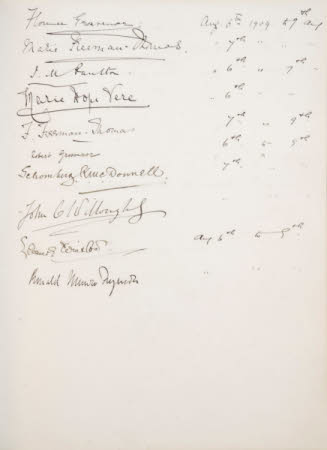 Florence Grosvenor Aug 5th 1909 to 7th Aug
Marie Freeman-Thomas " 7th "
J. M. " 6th " 7th "
Marie Hope Vere " 6th "
F. Freeman-Thomas 7th " 9th
Grosvenor 6th to 9th
Schomberg K McDonnell 7th "
John C Willoughby
Aug 6th to 9th
Ronald Munro Ferguson " "